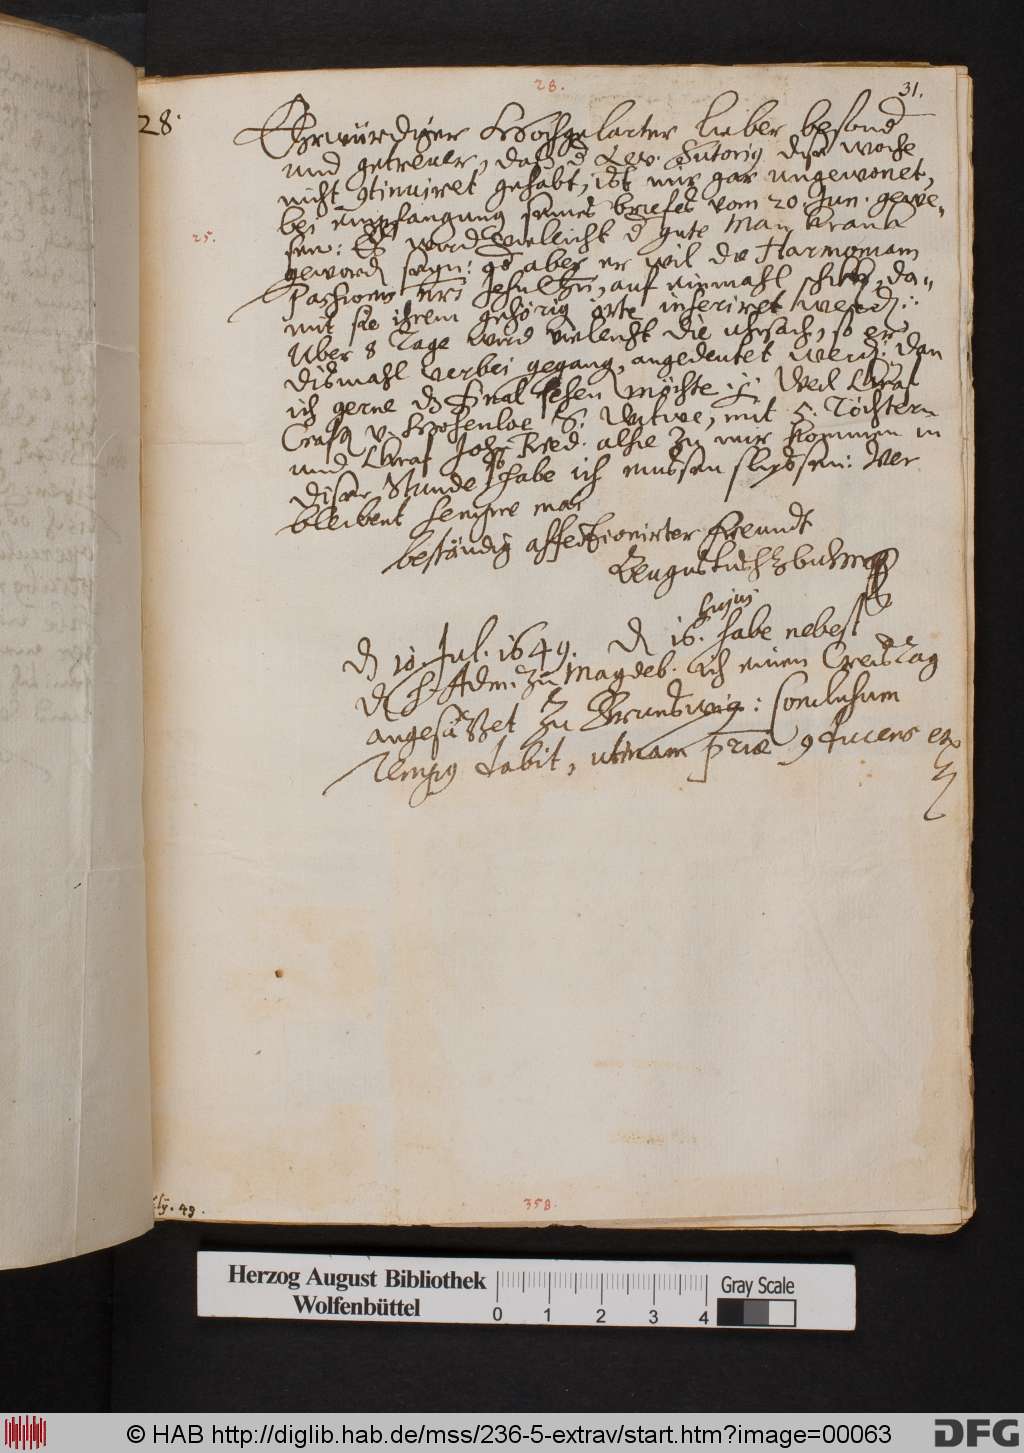 28.
31.
28.
Ehrwürdiger Hochgelarter lieber besond
und getreuer, daß d Lew. Sutorig dise woche
nicht 9tinuiret gehabt, ist mir gar ungewonet,
bei empfangung seines briefes vom 20. Jun. gewe-
25.
sen: Es wird vielleicht d gute Man kranck
geword sein: ob aber er wil die Harmoniam
Passionis nri Jesu Chri, auf einmahl schick, da-
mit sie ihrem gehörig orte inseriret werd:
Uber 8 Tage wird vieleicht die uhrsach, so er
dismahl verbei gegang, angedeutet werd: dan
ich gerne dz final sehen möchte :/: Weil Graf
Crafts v. Hohenloe S. Witwe, mit 5. Töchtern
und Graf Joh: Fried. alhie zu mir kommen in
diser Stunde, habe ich müssen schliessen: Ver
bleibent semper mas
beständig affectionirter Freundt
Augustus HzBuLMpp
hujus
d 10. Jul. 1649. d 16. habe nebest
d H. Adm. zu Magdeb. ich einen CreisTag
angesetzet zu Brunswig: conclusum
Tempus dabit, utinam priæ 9ducens ex
Ely. 49.
358.
Herzog August Bibliothek
Wolfenbüttel
0 1 2 3 4
Gray Scale
© HAB http://diglib.hab.de/mss/236-5-extrav/start.htm?image=00063
DFG